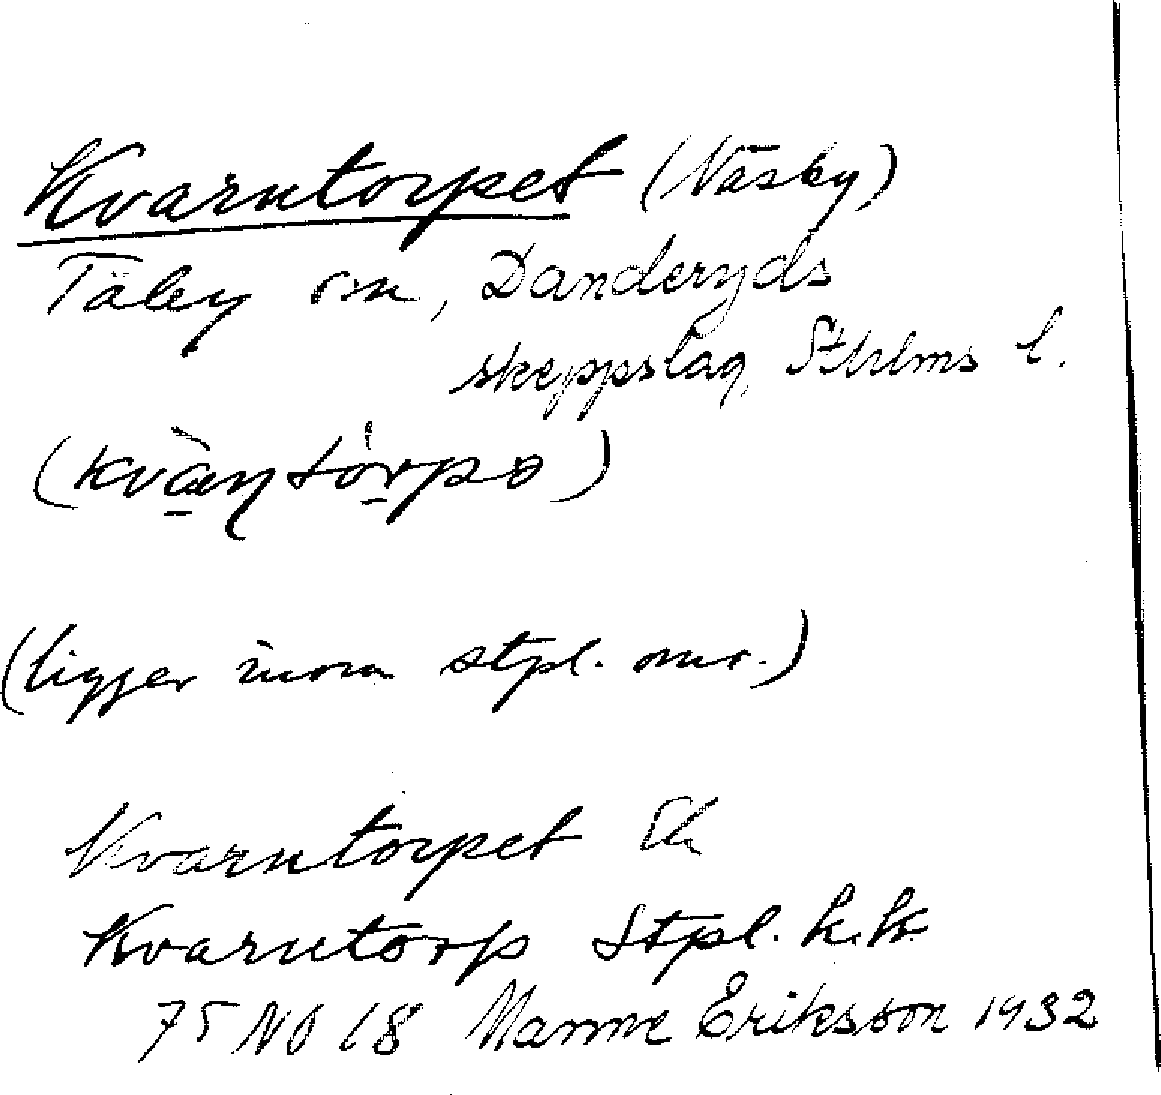 Kvarntorpet (Näsby)
Täby sn, Danderyds
skeppslag, Sthlms l.
(kvà̱ṇtó̱rpə)
(ligger inom stpl. omr.)
Kvarntorpet Ek
Kvarntorp Stpl. h.k.
75 NO 18 Manne Eriksson 1932